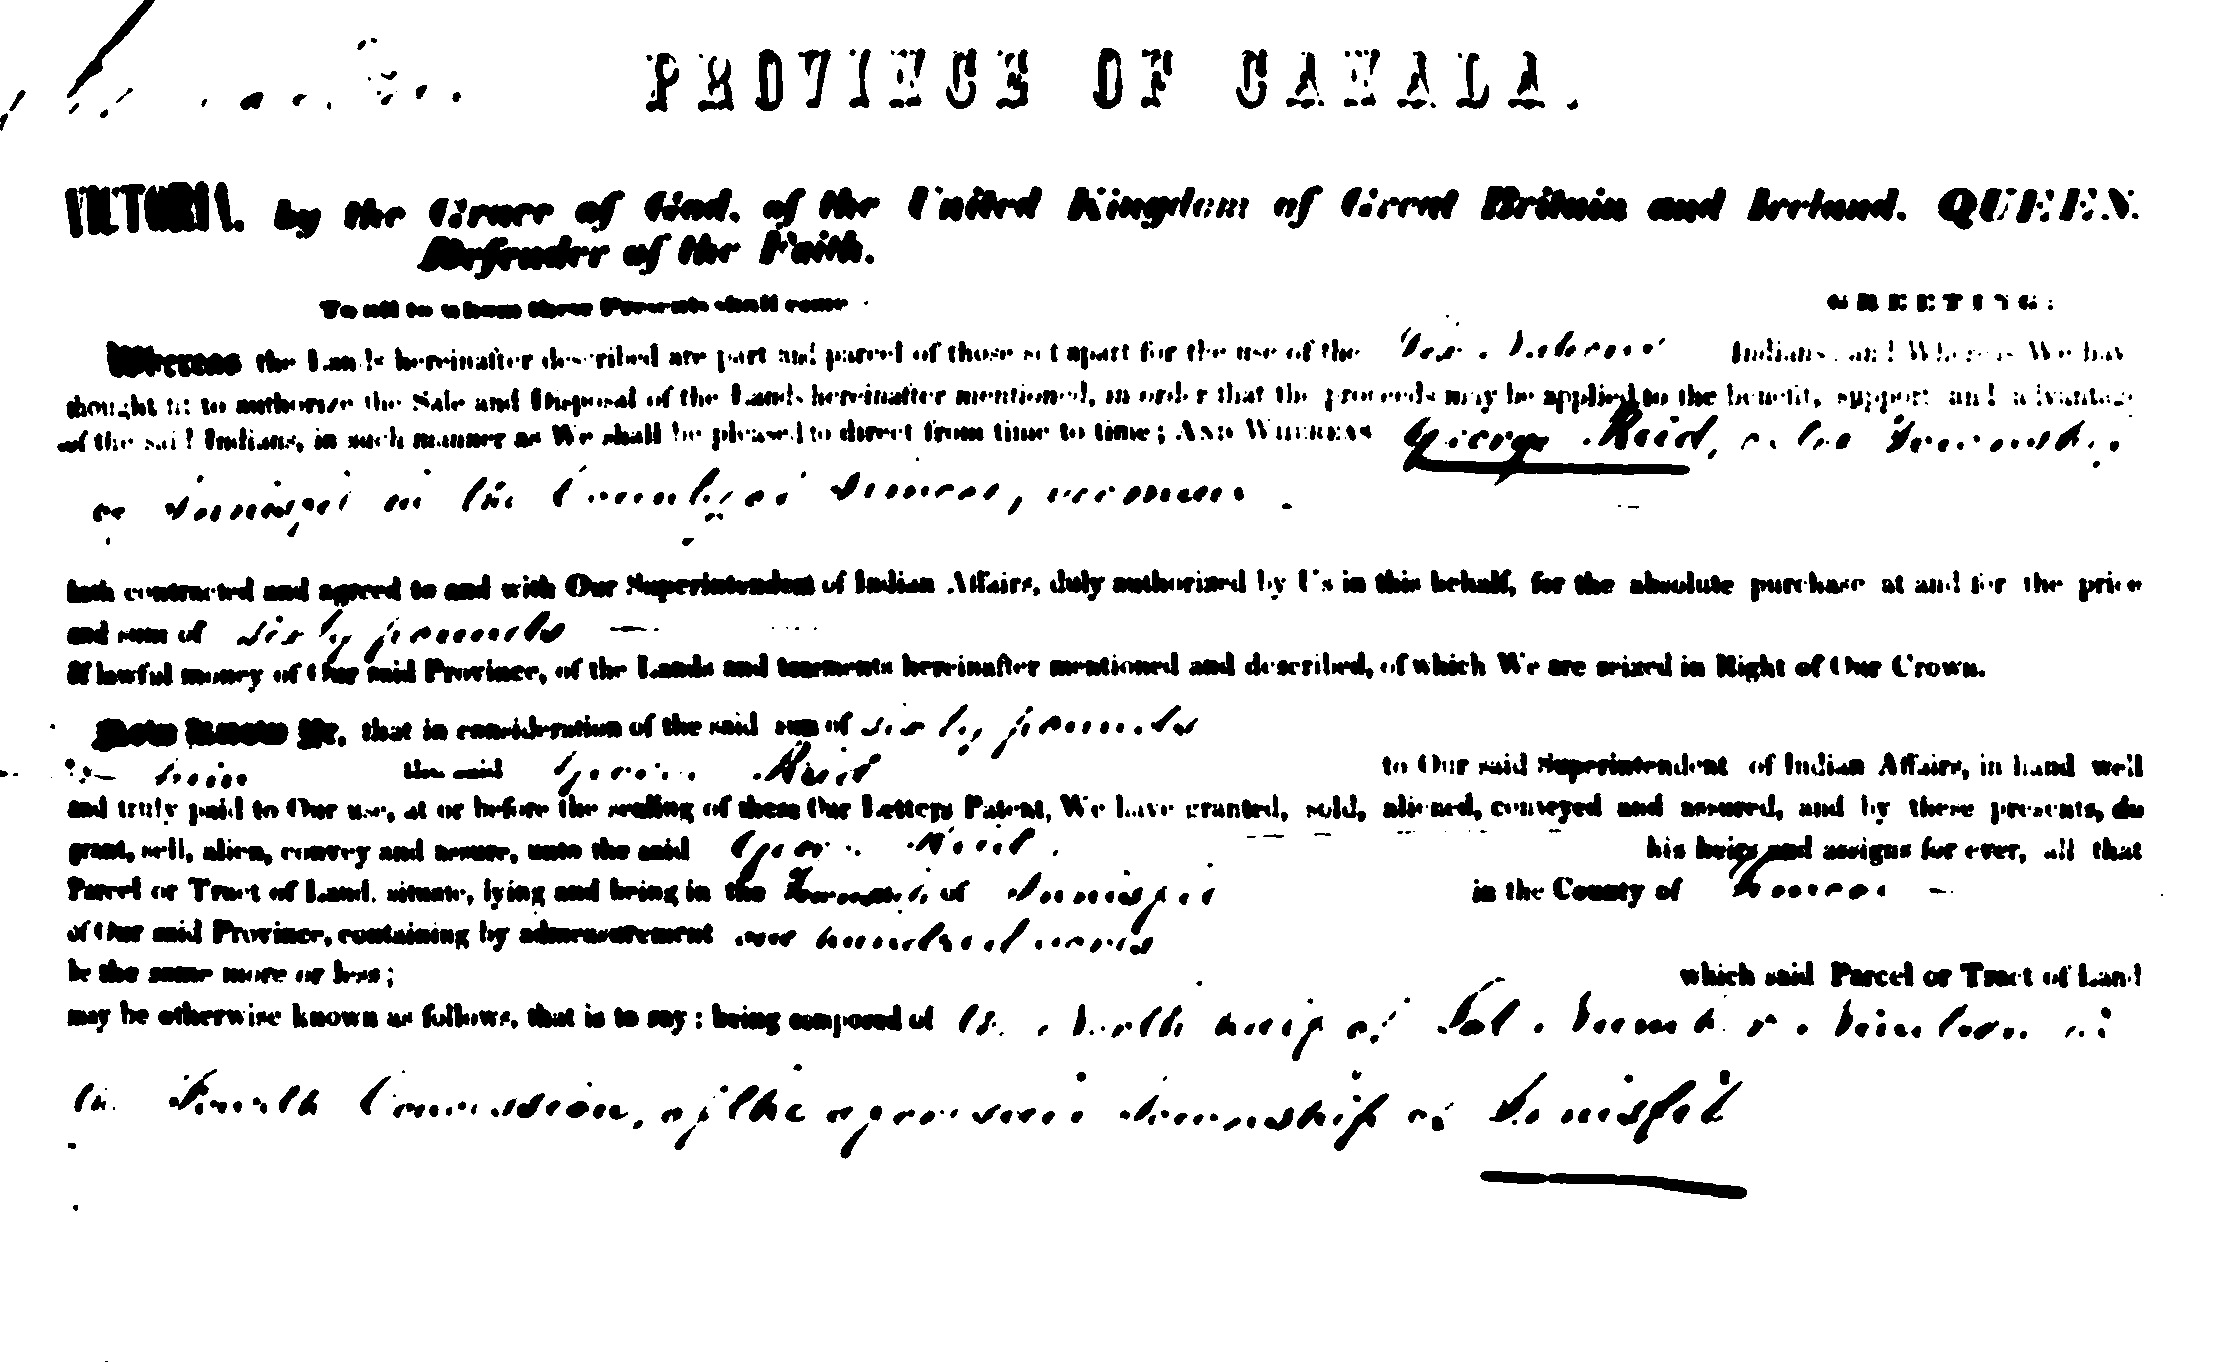 PROVINCE OF CANADA.
VICTORIA, by the Grace of God, of the United Kingdom of Great Britain and Ireland, QUEEN,
Defender of the Faith.
To all to whom these Presents shall come GREETING:
Whereas the Lands hereinafter described are part and parcel of those set apart for the use of the Indians, and Whereas We have
thought fit to authorize the Sale and Disposal of the Lands hereinafter mentioned, in order that the proceeds may be applied to the benefit, support and advantage
of the said Indians, in such manner as We shall be pleased to direct from time to time; AND WHEREAS George Reid, of the Township
of in the County of Simcoe, yeoman
hath contracted and agreed to and with Our Superintendent of Indian Affairs, duly authorized by Us in this behalf, for the absolute purchase at and for the price
and sum of sixty pounds
of lawful money of Our said Province, of the Lands and tenements hereinafter mentioned and described, of which We are seized in Right of Our Crown.
Now Know Ye, that in consideration of the said sum of sixty pounds
the said George Reid to Our said Superintendent of Indian Affairs, in hand well
and truly paid to Our use, at or before the sealing of these Our Letters Patent, We have granted, sold, aliened, conveyed and assured, and by these presents, do
grant, sell, alien, convey and assure, unto the said George Reid his heirs and assigns for ever, all that
Parcel or Tract of Land, situate, lying and being in the Township of in the County of Simcoe
of Our said Province, containing by admeasurement one hundred acres
be the same more or less; which said Parcel or Tract of Land
may be otherwise known as follows, that is to say: being composed of the North half of Lot Number Nineteen in
the Fourth Concession, of the aforesaid Township of